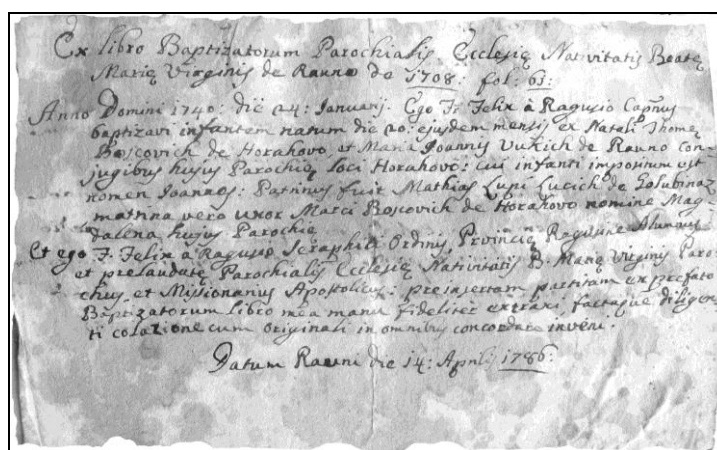 Ex libro Baptizatorum Parochialis Ecclesię Nativitatis Beatę
Marię Virginis de Rauno de 1708: fol: 61:
Anno Domini 1740: die 24: Januarij. Ego Fr. Felix à Ragusio Capnus
baptizavi infantem natum die 20: ejusdem mensis ex Natali Thomę
Boscovich de Horahovo, et Maria Joannis Vukich de Rauno con-
jugibus hujus Parochię loci Horahovo: cui infanti impositum est
nomen Joannes: Patrinus fuit Mathias Lupi Lucich de Golubinaz
matrina vero uxor Marci Boscovich de Horahovo nomine Mag-
dalena hujus Parochię
Et ego F. Felix à Ragusio Seraphici Ordinis, Prvincię Ragusine Alumnus
et prelaudatę Parochialis Ecclesię Nativitatis B. Marię Virginis Paro-
chus, et Missionarius Apostolicus: preinsertam partitam ex prefato
Baptizatorum libro mea manu fideliter extraxi, factaque diligen-
ti colazione cum originali in omnibus concordare inveni.
Datum Rauni die 14: Aprilij 1786: